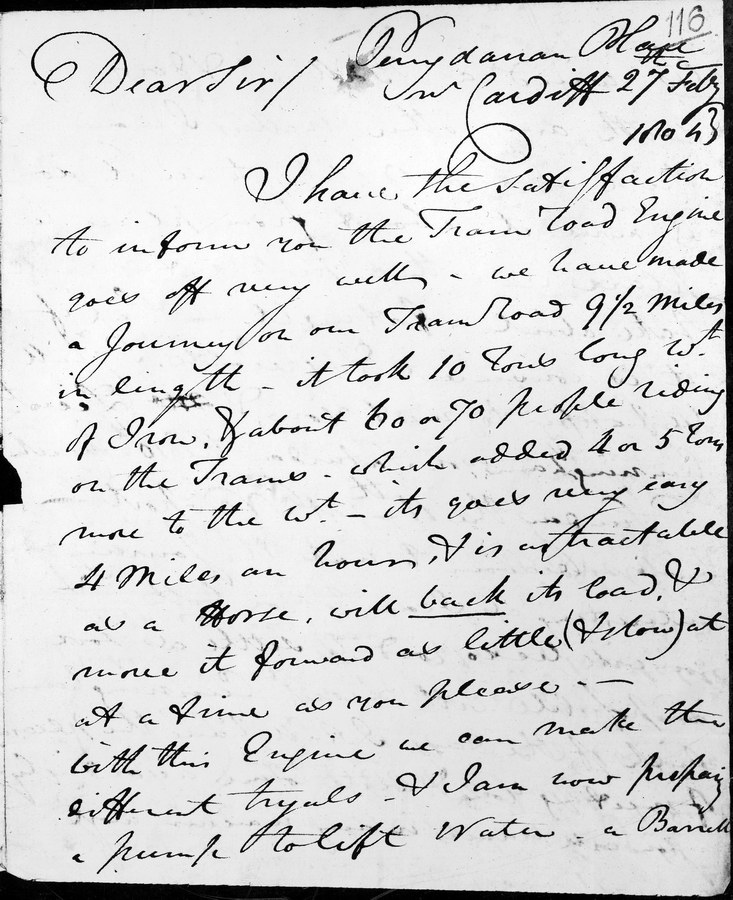 116
Dear Sir/ Penydarran Place
Nr Cardiff 27 Feby
1804
I have the Satisfaction
to inform you the Tram Road Engine
goes off very well - we have made
a Journey on our Tram Road 9 1/2 Miles
in length - it took 10 Tons long wt.
of Iron, & about 60 or 70 people riding
on the Trams - which added 4 or 5 Tons
more to the wt. - its goes very easy
4 Miles an hour, & is as tractable
as a Horse, will back its load, &
move it forward as little (& slow) at
at a time as you please -
with this Engine we can make the
different tryals - & I am now prepaig
a pump to lift Water - a Barrell